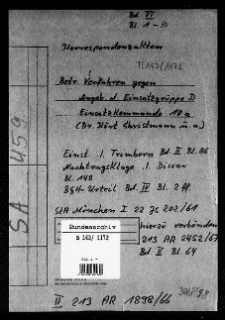 Bd. VI
Bl. 1 - 91
Korrespondenzakten
Betr. Verfahren gegen
Angeh. d. Einsatzgruppe D
Einsatzkommando 10a
(Dr. Kurt Christmann u. a)
Einst. ./. Trimborn Bd. II Bl. 86
Nachtragsklage ./.
Bl. 149
BGH-Urteil Bd. IV Bl. 2 ff.
StA München I 22 Js 202/61
Bundesarchiv
B 162/ 1172
hierzu verbunden
213 AR 2452/67
Bd. II Bl. 64
SA 459
II 213 AR 1898/66